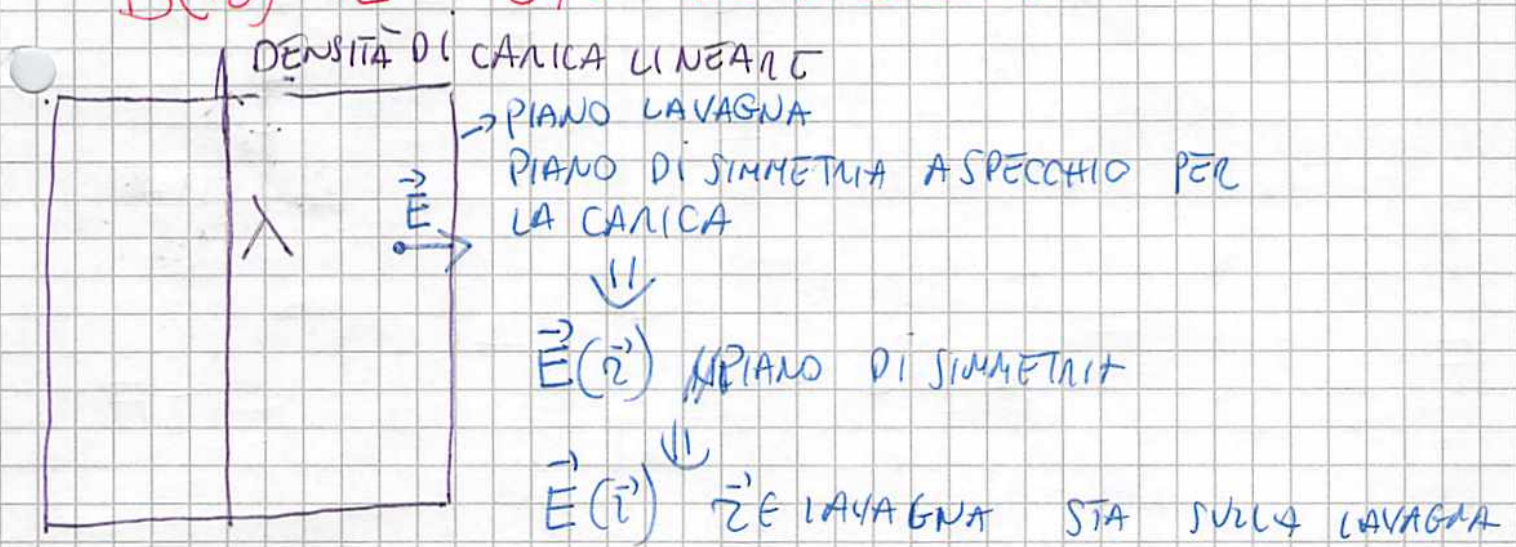 DENSITÀ DI CARICA LINEARE
→ PIANO LAVAGNA
PIANO DI SIMMETRIA A SPECCHIO PER
LA CARICA
λ
E⃗
⇓
E⃗(r⃗) // PIANO DI SIMMETRIA
⇓
E⃗(r⃗) r⃗ ∈ LAVAGNA STA SULLA LAVAGNA